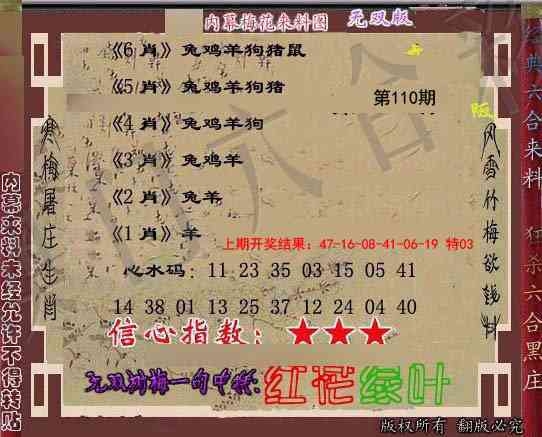 内幕梅花来料图 无双版
《6 肖》兔鸡羊狗猪鼠
《5 肖》兔鸡羊狗猪
第110期
《4 肖》兔鸡羊狗
《3 肖》兔鸡羊
《2 肖》兔羊
《1 肖》羊
上期开奖结果：47-16-08-41-06-19 特03
心水码：11 23 35 03 15 05 41
14 38 01 13 25 37 12 24 04 40
信心指数：★★★
红花绿叶
版权所有 翻版必究
寒梅屠庄生肖
内幕来料未经允许不得转贴
风雪竹梅欲钱料
经典六合来料
狂杀六合黑庄
六合